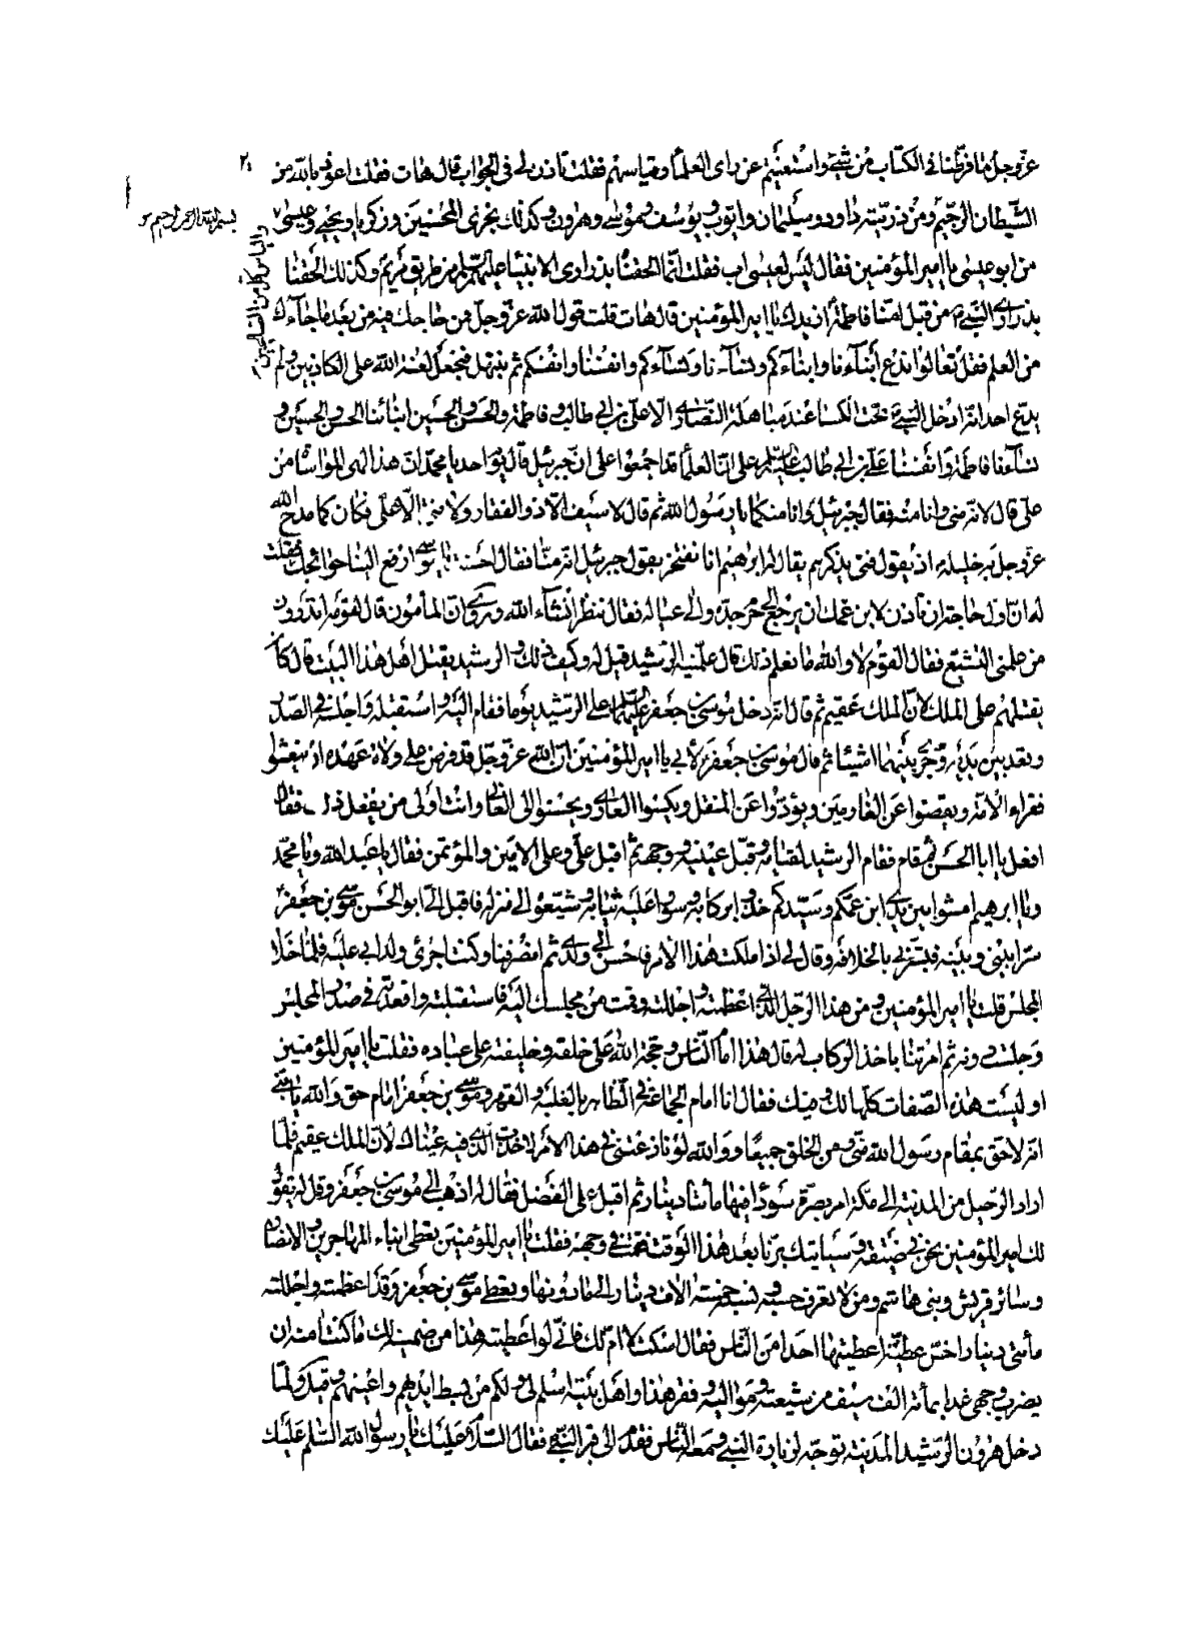 عزّ وجلّ ما فرّطنا في الكتاب من شئ واستغنيتم عن راى العلمآء وقياسهم فقلت تاذن لى فى الجواب قال هات فقلت اعوذ بالله من
بسم الله الرحمن الرحيم
الشّيطان الرّجيم ومن ذريّته داود وسليمان وايّوب ويوسف وموسى وهرون وكذلك نجزى المحسنين وزكريا ويحيى وعيسى
والياس كل من الصّالحين
من ابو عيسى يا امير المؤمنين فقال ليس لعيسى اب فقلت انّما الحقناه بذرارى الانبياء عليهم السلم من طريق مريم وكذلك الحقنا
بذرارى النبى من قبل امّنا فاطمة ازيدك يا امير المؤمنين قال هات قلت قول الله عزّ وجلّ فمن حاجّك فيه من بعد ما جاءك
من العلم فقل تعالوا ندع أبنآءنا وابناءكم ونسآءنا ونسآءكم وانفسنا وانفسكم ثم نبتهل فنجعل لعنة الله على الكاذبين ولم
يدّع احد انّه ادخل النبى تحت الكساء عند مباهلة النّصارى الّا على بن ابى طالب وفاطمة والحسن والحسين ابنائنا الحسن والحسين و
نسآءنا فاطمة وانفسنا على بن ابى طالب عليه السلم على انّ العلمآء قد اجمعوا على انّ جبرئيل قال يوم احد يا محمّد انّ هذا لهى المواساة من
علىّ قال لانّه منّى وانا منه فقال جبرئيل وانا منكما يا رسول الله ثم قال لا سيف الّا ذو الفقار ولا فتى الّا علىّ فكان كما مدح الله
عزّ وجلّ به خليله اذ يقول فتى يذكرهم يقال له ابراهيم انا نفتخر بقول جبرئيل انّه منّا فقال احسنت يا موسى ارفع الينا حوائجك فقلت
له انّ اول حاجة ان تاذن لابن عمك ان يرجع الى حرم جدّه والى عياله فقال ننظر انشآء الله وروى انّ المأمون قال لقومه اتدرون
من علمنى التشيّع فقال القوم لا والله ما نعلم ذلك قال علّمنيه الرّشيد قيل له وكيف ذلك والرشيد يقتل اهل هذا البيت قال كان
يقتلهم على الملك لانّ الملك عقيم ثم قال انّه دخل موسى بن جعفر عليهما السلم على الرّشيد يوما فقام اليه واستقبله واجلسه فى الصدر
وقعد بين يديه وجرى بينهما اشياء ثم قال موسى بن جعفر لأبى يا امير المؤمنين انّ الله عزّ وجلّ قد فرض على ولاة عهده ان ينعشوا
فقراء الامّة ويقضوا عن الغارمين ويؤدّوا عن المثقل ويكسوا العارى ويحسنوا الى العانى وانت اولى من يفعل ذلك فقال
افعل يا ابا الحسن ثم قام فقام الرشيد لقيامه وقبّل عينيه ووجهه ثم اقبل علىّ وعلى الامين والمؤتمن فقال يا عبد الله ويا محمّد
ويا ابرهيم امشوا بين يدى ابن عمّكم وسيّدكم خذوا بركابه وسوّوا عليه ثيابه وشيّعوه الى منزله فاقبل الىّ ابو الحسن موسى بن جعفر
سرّا بينى وبينه فبشّرنى بالخلافة وقال لى اذا ملكت هذا الامر فاحسن الى ولدى ثم انصرفنا وكنت اجرى ولد ابى عليه فلمّا خلا
المجلس قلت يا امير المؤمنين ومن هذا الرّجل الّذى اعظمته واجللته وقمت من مجلسك اليه فاستقبلته واقعدته فى صدر المجلس
وجلست دونه ثم امرتنا باخذ الركاب له قال هذا امام النّاس وحجّة الله على خلقه وخليفته على عباده فقلت يا امير المؤمنين
اوليست هذه الصّفات كلّها لك وفيك فقال انا امام الجماعة فى الظّاهر بالغلبة والقهر وموسى بن جعفر امام حق والله يا بنىّ
انّه لاحق بمقام رسول الله منّى ومن الخلق جميعا ووالله لو نازعتنى هذا الامر لاخذت الّذى فيه عيناك لانّ الملك عقيم فلمّا
اراد الرّحيل من المدينة الى مكّة امر بصرّة سوداء فيها مأتا دينار ثم اقبل على الفضل فقال له اذهب الى موسى بن جعفر وقل له يقول
لك امير المؤمنين نحن فى ضيقة وسياتيك برّنا بعد هذا الوقت فقمت فى وجهه فقلت يا امير المؤمنين تعطى ابناء المهاجرين والانصار
وسائر قريش وبنى هاشم ومن لا يعرف حسبه ونسبه خمسة الاف دينار الى ما دونها وتعطى موسى بن جعفر وقد اعظمته واجللته
مأتى دينار اخسّ عطيّة اعطيتها احدا من النّاس فقال اسكت لا امّ لك فانّى لو اعطيته هذا ما ضمنته له ما كنت امنه ان
يضرب وجهى غدا بمأته الف سيف من شيعته ومواليه وفقر هذا واهل بيته اسلم لى ولكم من بسط ايديهم واعينهم وقيل ولمّا
دخل هرون الرّشيد المدينة توجّه لزيارة النبى ومعه النّاس فتقدّم الى قبر النبىّ فقال السّلام عليك يا رسول الله السّلم عليك